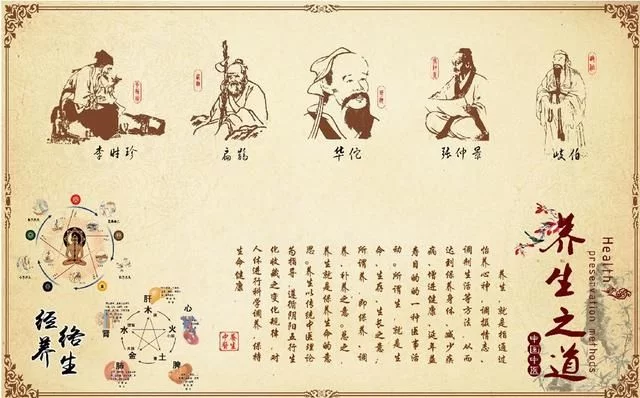 李时珍
扁鹊
华佗
张仲景
岐伯
养生之道
Health
preservation methods
中国中医
养生,就是指通过
怡养心神、调摄情志、
调剂生活等方法,从而
达到保养身体、减少疾
病、增进健康、延年益
寿目的的一种医事活
动。所谓生,就是生
命、生存、生长之意;
所谓养,即保养、调
养、补养之意。总之,
养生就是保养生命的意
思。养生以传统中医理论
为指导,遵循阴阳五行生
化收藏之变化规律,对
人体进行科学调养,保持
生命健康
养生
中医
经络
养生
肝
木
心
火
水
肾
金
土
肺
脾